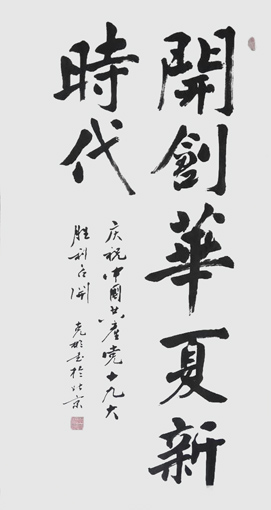 開創華夏新
時代
庆祝中国共產党十九大
胜利召開
克彬书於北京